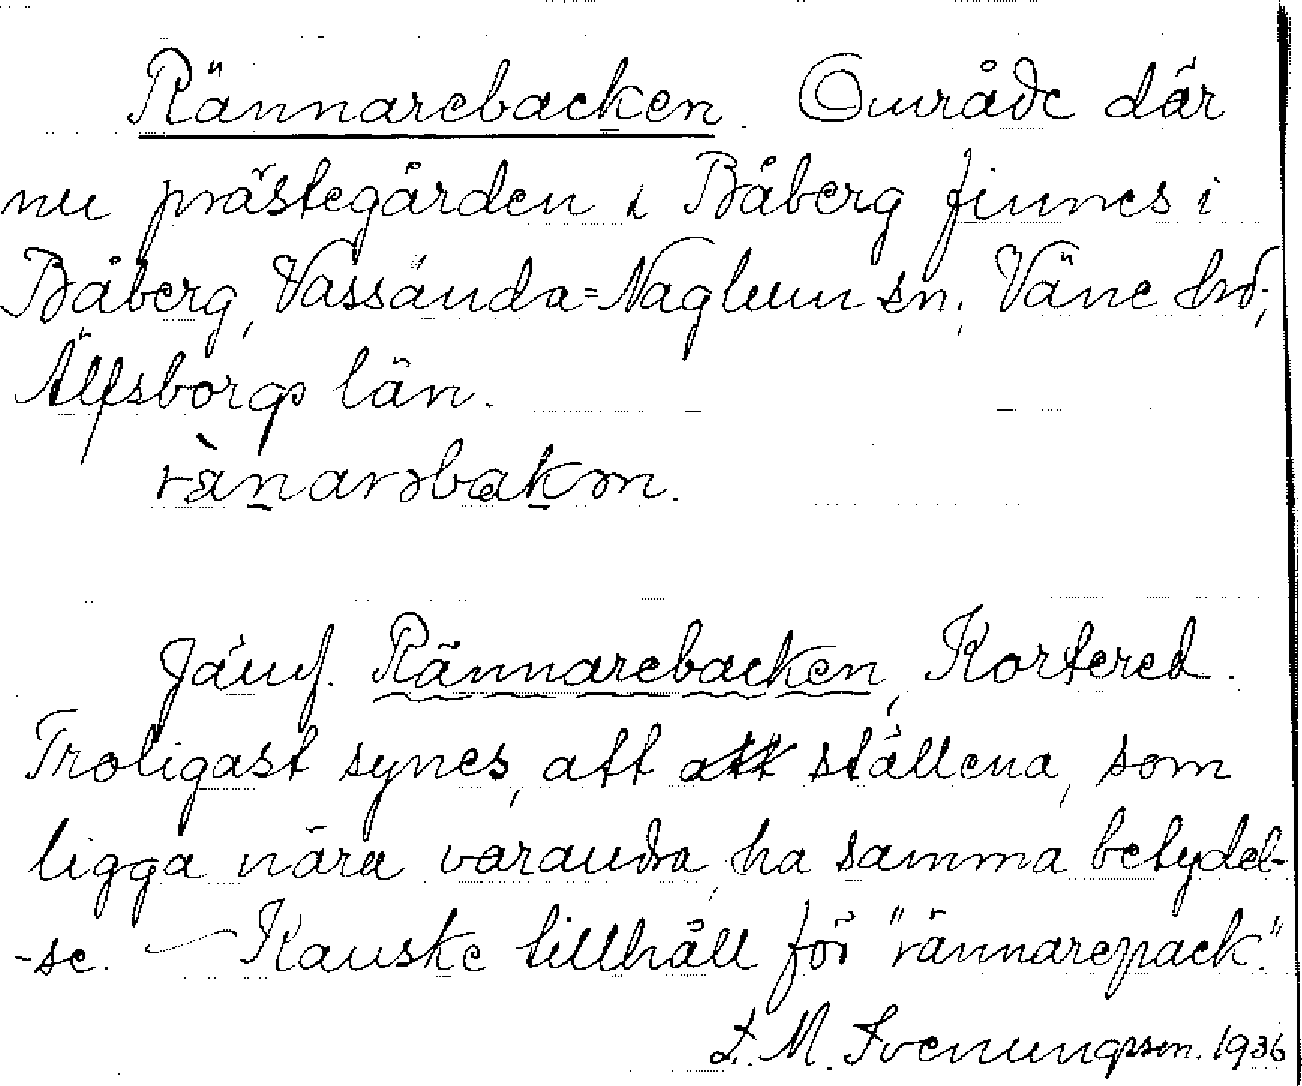 Rännarebacken. Område där
nu prästegården i Båberg finnes i
Båberg, Vassända=Naglum sn, Väne hd,
Älfsborgs län.
rànarəbakən.
Jämf. Rännarebacken, Kortered.
Troligast synes, att ställena, som
ligga nära varandra, ha samma betydel-
-se. — Kanske tillhåll för "rännarepack."
L. M. Svenungsson. 1936